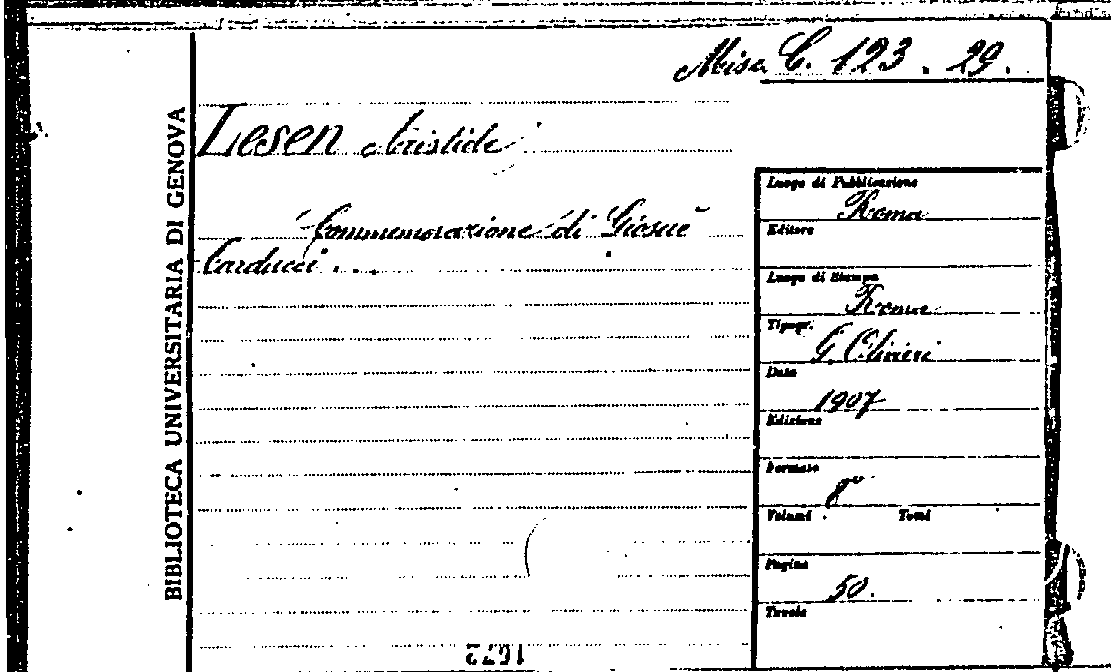 Misc C. 123 . 29.
BIBLIOTECA UNIVERSITARIA DI GENOVA
Lesen Aristide
Commemorazione di Giosuè
Carducci . . .
Luogo di Pubblicazione
Roma
Editore
Luogo di Stampa
Roma
Tipogr.
G. Olivieri
Data
1907
Edizione
Formato
8°
Volumi Tomi
Pagine
50.
Tavole